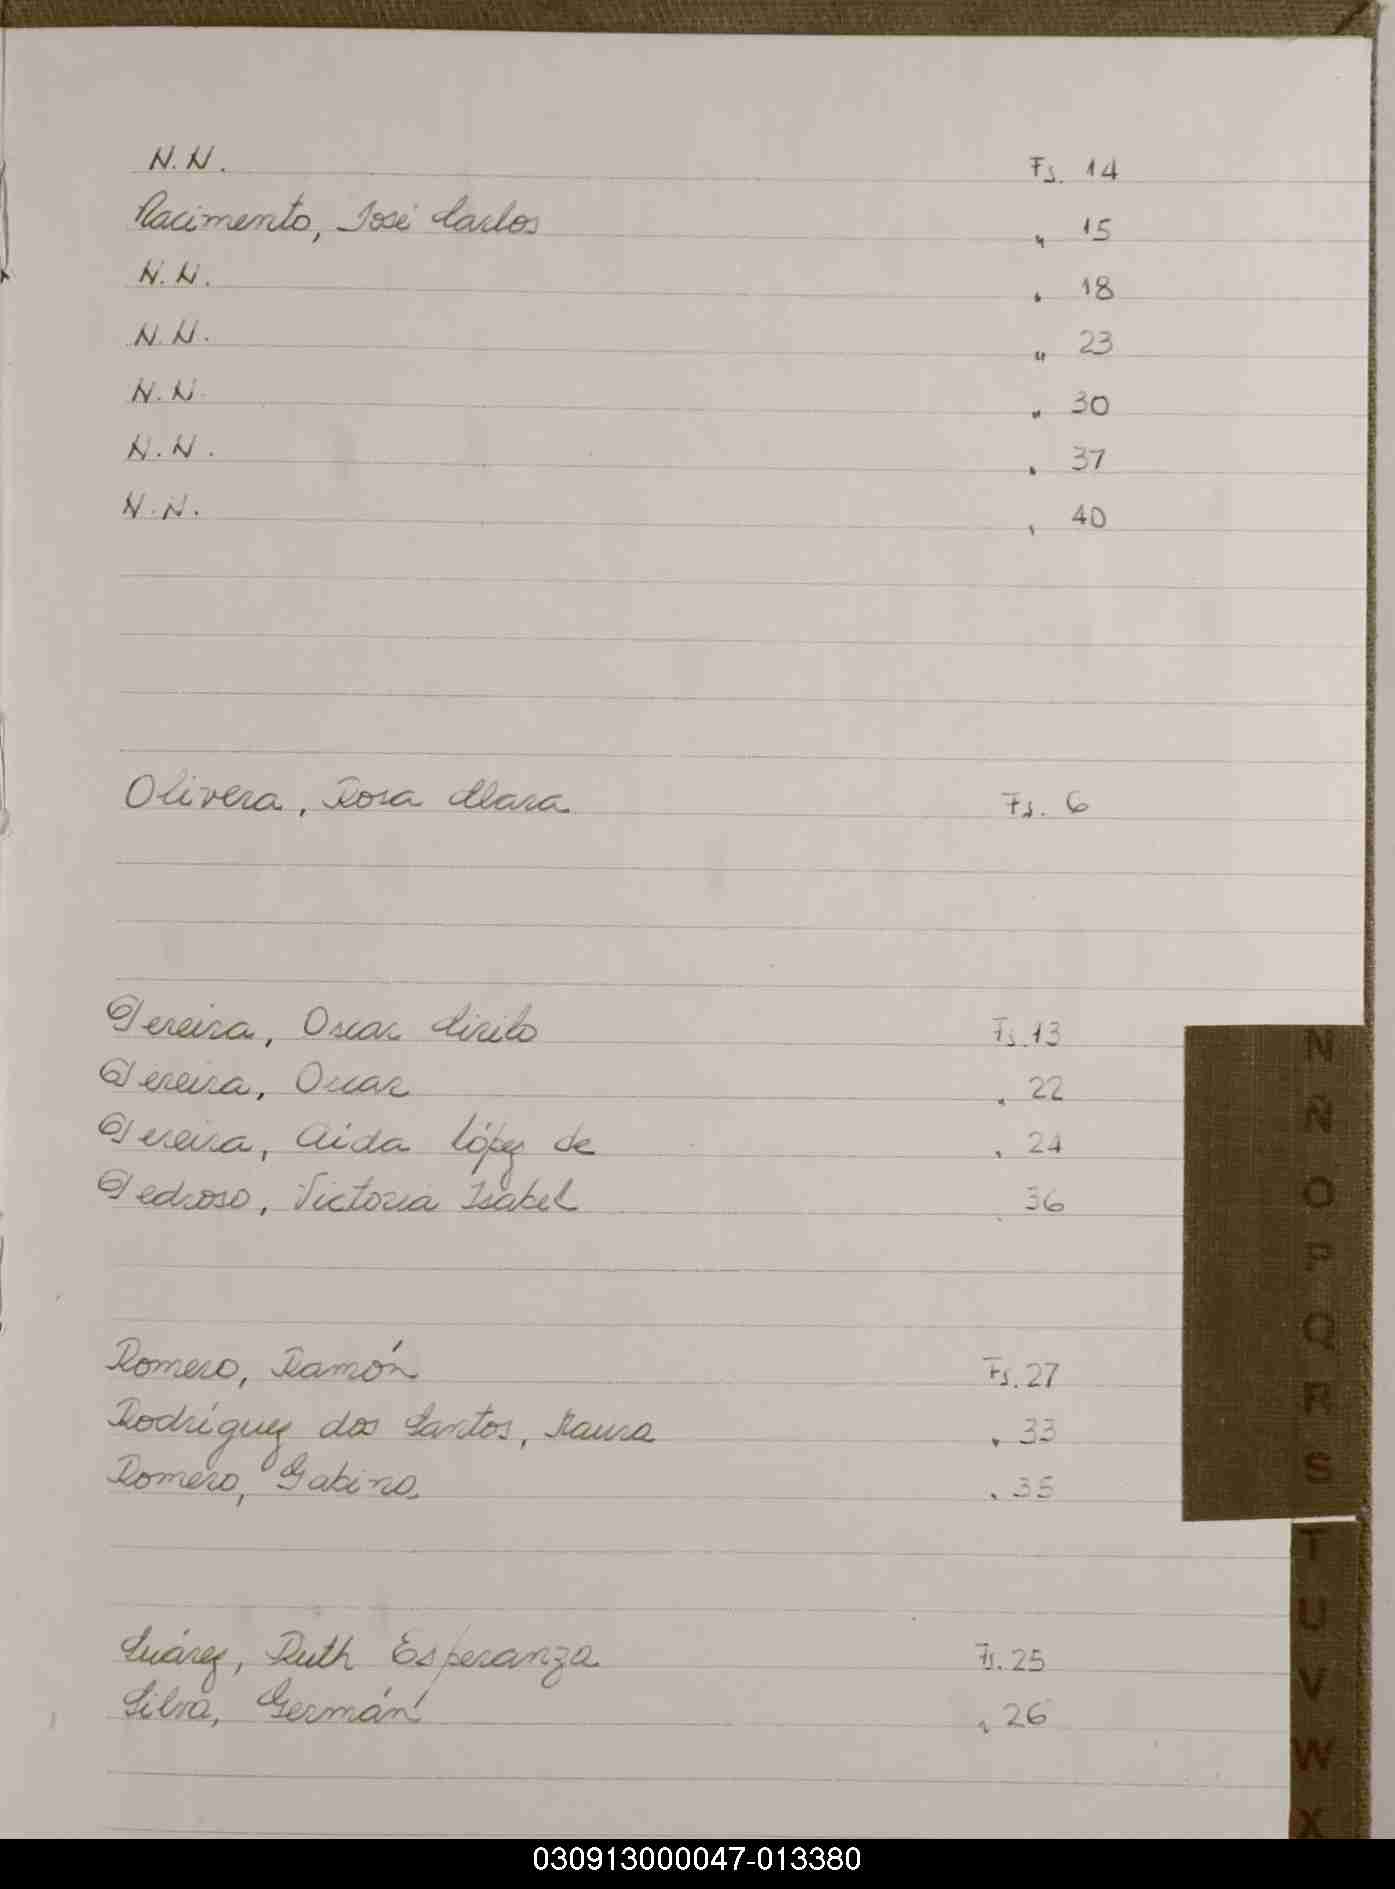 N.N. Fs. 14
Nacimento, José Carlos " 15
N.N. " 18
N.N. " 23
N.N. " 30
N.N. " 37
N.N. " 40
Olivera, Rosa Clara Fs. 6
Pereira, Oscar Cirilo Fs. 13
Pereira, Oscar " 22
Pereira, Aida López de " 24
Pedroso, Victoria Isabel " 36
Romero, Ramón Fs. 27
Rodríguez dos Santos, Maura " 33
Romero, Gabino " 35
Suárez, Ruth Esperanza Fs. 25
Silva, Germán " 26
N
Ñ
O
P
Q
R
S
T
U
V
W
X
030913000047-013380